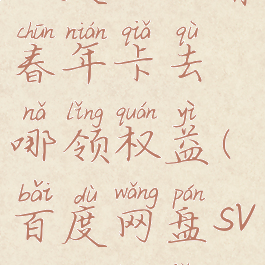 chūn nián qiǎ qù
春年卡去
nǎ lǐng quán yì
哪领权益(
bǎi dù wǎng pán
百度网盘SV